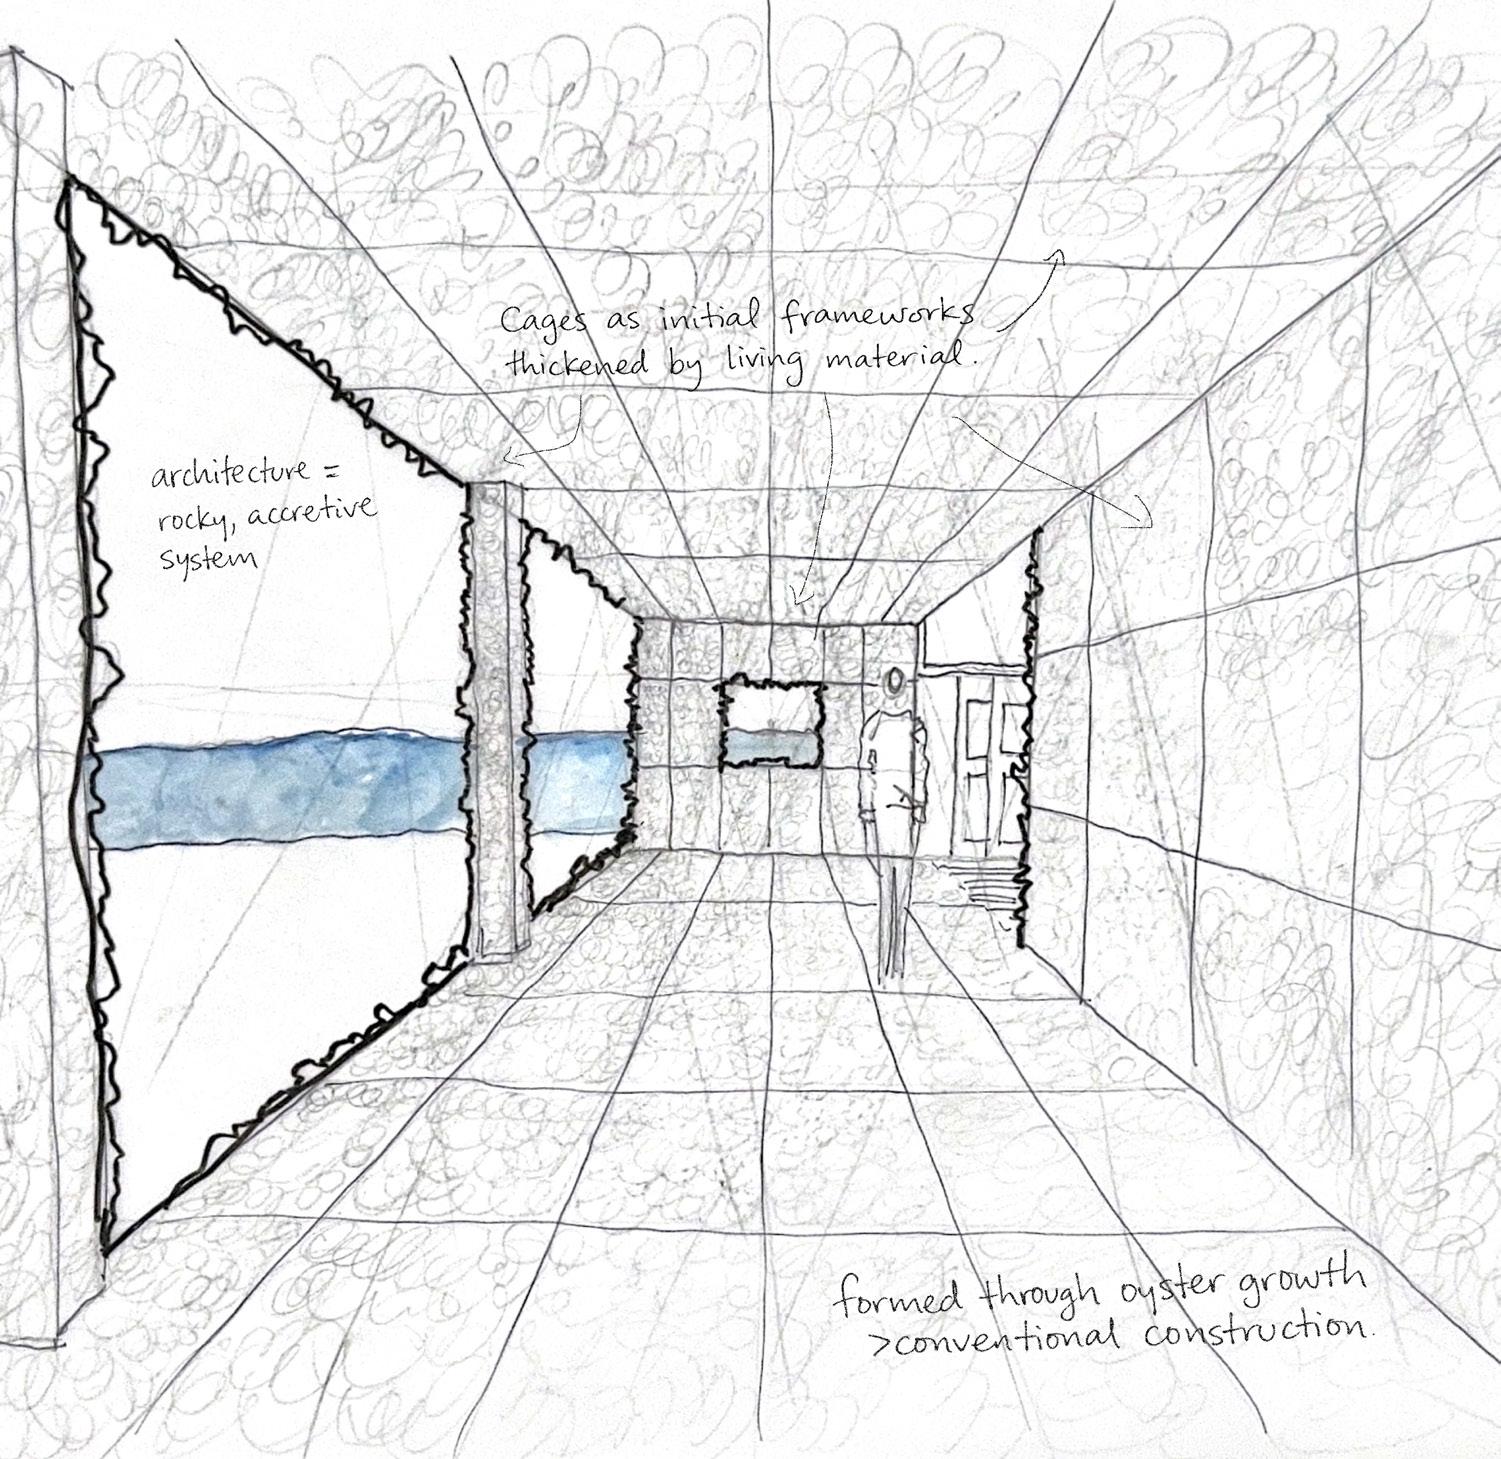 Cages as initial frameworks
thickened by living material.
architecture =
rocky, accretive
system
formed through oyster growth
>conventional construction.